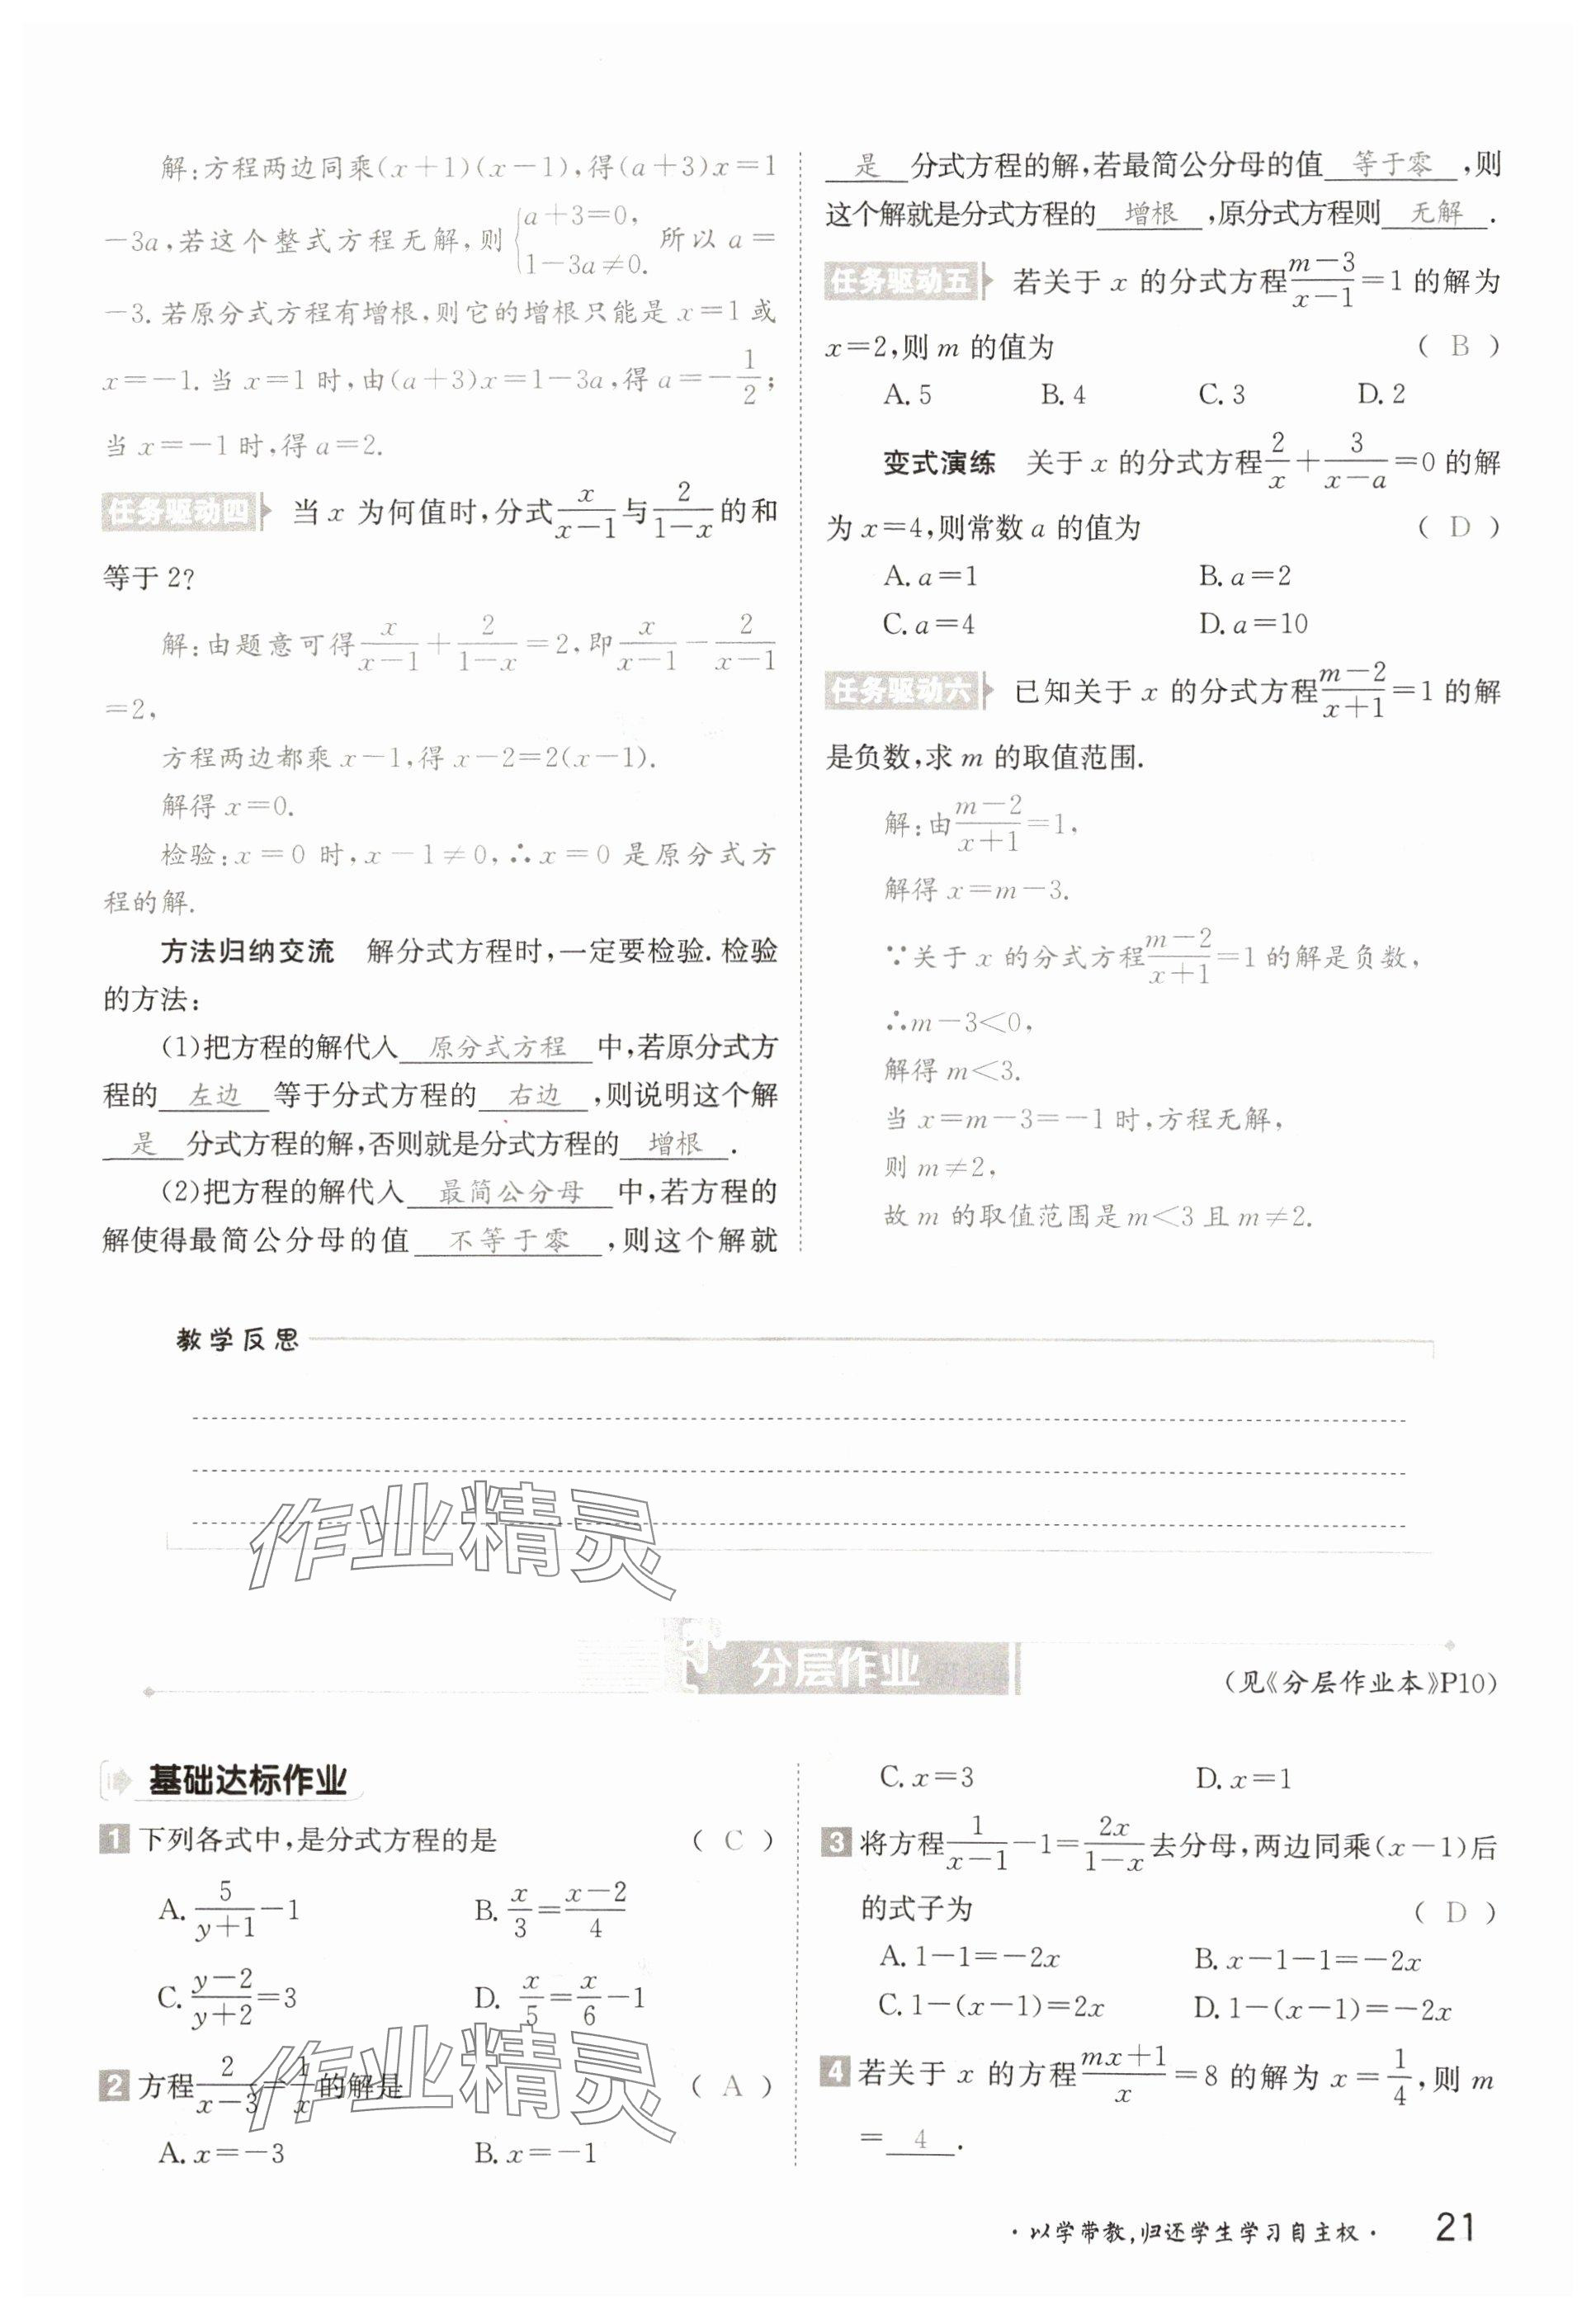 解:方程两边同乘(x+1)(x−1),得(a+3)x=1
−3a,若这个整式方程无解,则{a+3=0, 1−3a≠0. 所以a=
−3.若原分式方程有增根,则它的增根只能是x=1或
x=−1.当x=1时,由(a+3)x=1−3a,得a=−1/2;
当x=−1时,得a=2.
任务驱动四 当x为何值时,分式x/(x−1)与2/(1−x)的和
等于2?
解:由题意可得x/(x−1)+2/(1−x)=2,即x/(x−1)−2/(x−1)
=2,
方程两边都乘x−1,得x−2=2(x−1).
解得x=0.
检验:x=0时,x−1≠0,∴x=0是原分式方
程的解.
方法归纳交流 解分式方程时,一定要检验.检验
的方法:
(1)把方程的解代入 原分式方程 中,若原分式方
程的 左边 等于分式方程的 右边 ,则说明这个解
是 分式方程的解,否则就是分式方程的 增根 .
(2)把方程的解代入 最简公分母 中,若方程的
解使得最简公分母的值 不等于零 ,则这个解就
是 分式方程的解,若最简公分母的值 等于零 ,则
这个解就是分式方程的 增根 ,原分式方程则 无解 .
任务驱动五 若关于x的分式方程(m−3)/(x−1)=1的解为
x=2,则m的值为 ( B )
A.5 B.4 C.3 D.2
变式演练 关于x的分式方程2/x+3/(x−a)=0的解
为x=4,则常数a的值为 ( D )
A.a=1 B.a=2
C.a=4 D.a=10
任务驱动六 已知关于x的分式方程(m−2)/(x+1)=1的解
是负数,求m的取值范围.
解:由(m−2)/(x+1)=1,
解得x=m−3.
∵关于x的分式方程(m−2)/(x+1)=1的解是负数,
∴m−3<0,
解得m<3.
当x=m−3=−1时,方程无解,
则m≠2,
故m的取值范围是m<3且m≠2.
教学反思
作业精灵
分层作业
(见《分层作业本》P10)
基础达标作业
1 下列各式中,是分式方程的是 ( C )
A.5/(y+1)−1 B.x/3=(x−2)/4
C.(y−2)/(y+2)=3 D.x/5=x/6−1
2 方程2/(x−3)=1/x的解是 ( A )
A.x=−3 B.x=−1
作业精灵
C.x=3 D.x=1
3 将方程1/(x−1)−1=2x/(1−x)去分母,两边同乘(x−1)后
的式子为 ( D )
A.1−1=−2x B.x−1−1=−2x
C.1−(x−1)=2x D.1−(x−1)=−2x
4 若关于x的方程(mx+1)/x=8的解为x=1/4,则m
= 4 .
·以学带教,归还学生学习自主权· 21